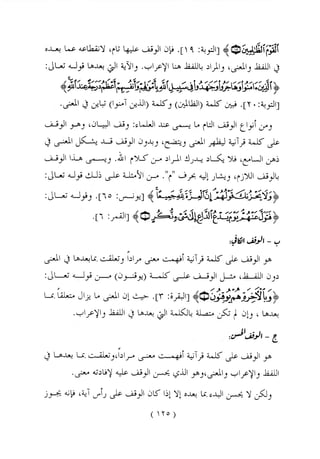 القوم الظالمين﴾ [التوبة: ١٩]. فإن الوقف عليها تام، لانقطاعها عما بعده
في اللفظ والمعنى، والمراد باللفظ هنا الإعراب. والآية التي بعدها قوله تعالى:
﴿الذين ءامنوا وهاجروا وجاهدوا في سبيل الله بأموالهم وأنفسهم أعظم درجة عند الله﴾
[التوبة: ٢٠]. فبين كلمة (الظالمين) وكلمة (الذين آمنوا) تباين في المعنى.
ومن أنواع الوقف التام ما يسمى عند العلماء: وقف البيان، وهو الوقف
على كلمة تؤدي ليظهر المعنى ويتضح، وبدون الوقف قد يشكل المعنى في
ذهن السامع، فلا يكاد يدرك المراد من كلام الله. ويسمى هذا الوقف
بالوقف اللازم، ويشار إليه بحرف "م". من الأمثلة على ذلك قوله تعالى:
﴿ولا يحزنك قولهم إن العزة لله جميعا﴾ [يونس: ٦٥]. وقوله تعالى:
﴿فتول عنهم يوم يدع الداع إلى شيء نكر﴾ [القمر: ٦].
ب - الوقف الكافي:
هو الوقف على كلمة تؤدي المقصود معنى مراداً وتتعلق بما بعدها في المعنى
دون اللفظ، مثل الوقف على كلمة (يوقنون) من قوله تعالى:
﴿وبالآخرة هم يوقنون﴾ [البقرة: ٣]. حيث إن المعنى ما يزال متعلقاً بما
بعدها، وإن لم تكن متصلة بالكلمة التي بعدها في اللفظ والإعراب.
ج - الوقف الحسن:
هو الوقف على كلمة تؤدي المقصود معنى مراداً، وتتعلق بما بعدها في
اللفظ والإعراب والمعنى، وهو الذي يحسن الوقف عليه لإفادته معنى.
ولكن لا يحسن البدء بما بعده إلا إذا كان الوقف على رأس آية، فإنه يجوز
( ١٢٥ )